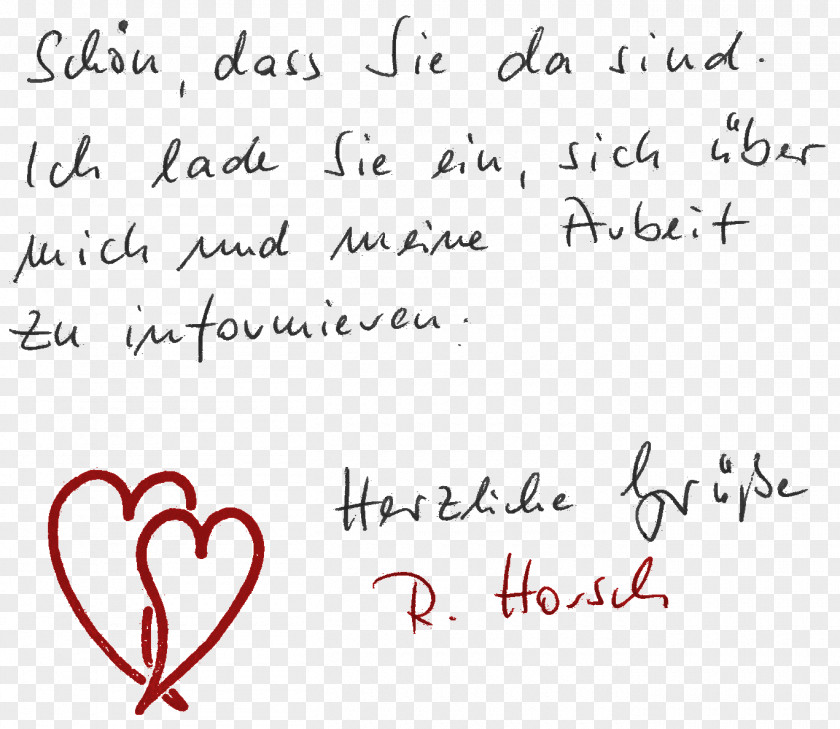 Schön, dass Sie da sind.
Ich lade Sie ein, sich über
mich und meine Arbeit
zu informieren.
Herzliche Grüße
R. Horsch